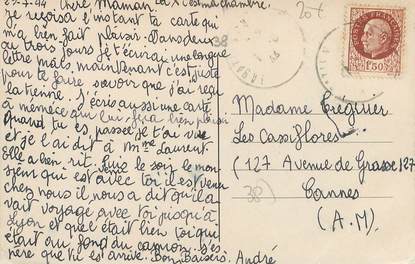 29-7-44 Chère Maman. La X c'est ma chambre.
Je reçois à l'instant ta carte qui
m'a bien fait plaisir. Dans deux
ou trois jours je t'écrirai une longue
lettre mais maintenant c'est juste
pour te faire savoir que j'ai reçu
la tienne. J'écris aussi une carte
à mémère qui lui fera bien plaisir
Quand tu es passée je t'ai vue
et je l'ai dit à Mme Laurent
elle a bien rit. Puis le soir le mon-
sieur qui est avec toi il est venu
chez nous il nous a dit qu'il a
vait voyagé avec toi jusqu'à
Lyon et que c'était bien toi qui
était au fond du camion. J'es-
père que tu es arrivé. Bon Baisers. André
38
20f
1F50
Madame Treguier
Les Cassiflores
(127 Avenue de Grasse 127
Cannes
(A.M)
38)